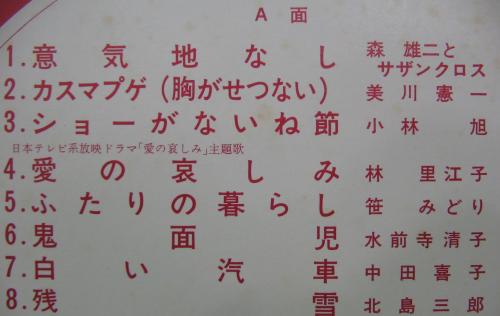 A面
1.意気地なし 森 雄二と
サザンクロス
2.カスマプゲ(胸がせつない) 美川憲一
3.ショーがないね節 小林 旭
日本テレビ系放映ドラマ「愛の哀しみ」主題歌
4.愛の哀しみ 林 里江子
5.ふたりの暮らし 笹 みどり
6.鬼面児 水前寺清子
7.白い汽車 中田喜子
8.残雪 北島三郎